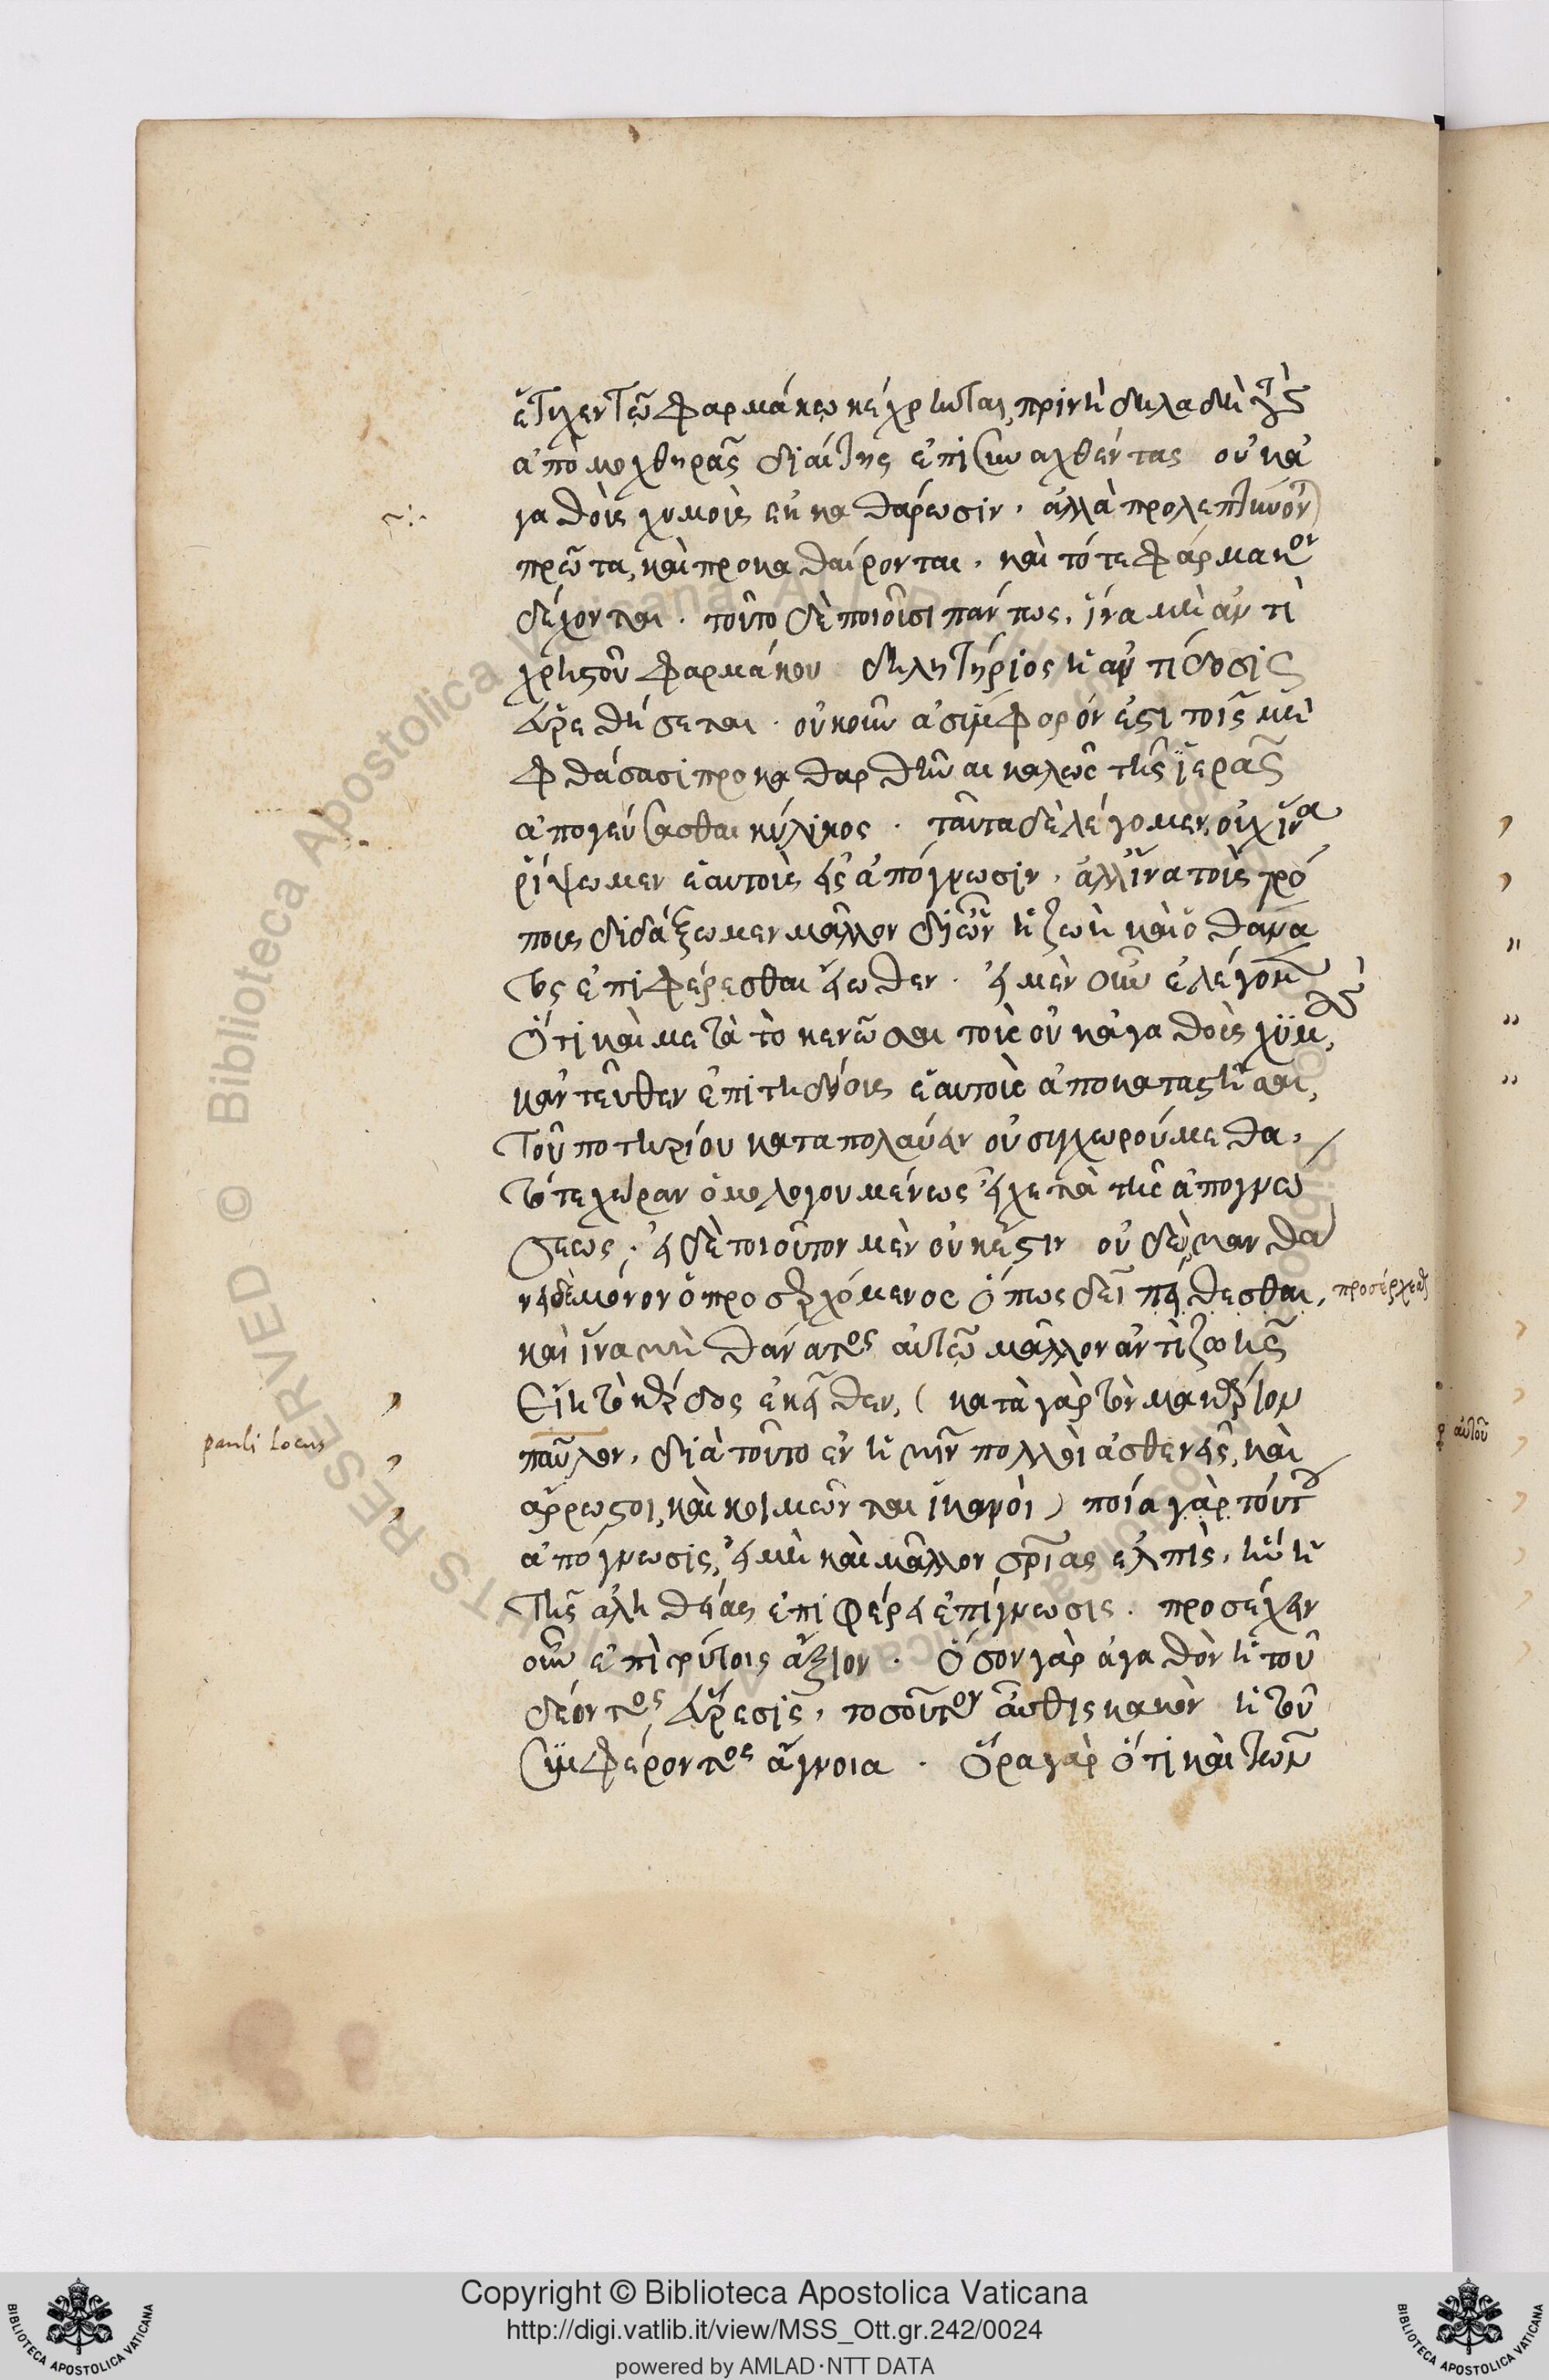 ἔτυχεν τῶ φαρμάκω κέχρηνται, πρινὴ δηλαδὴ τοὺς
ἀπὸ μοχθηρᾶς διαίτης ἐπισυναχθέντας οὐκ ἀ
γαθοὺς χυμοὺς ἐκκαθάρωσιν. ἀλλὰ προλεπτύνονται
πρῶτα, καὶ προκαθαίρονται. καὶ τότε φάρμακον
δέχονται. τοῦτο δὲ ποιοῦσι πάντως, ἵνα μὴ ἀντὶ
χρηστοῦ φαρμάκου δηλητήριος ἡ ἀντίδοσις
εὑρεθήσεται. οὐκοῦν ἀσύμφορόν ἐστι τοῖς μὴ
φθάσασι προκαθαρθῆναι καλῶς τῆς ἱερᾶς
ἀπογεύσασθαι κύλικος. ταῦτα δὲ λέγομεν, οὐχ ἵνα
ῥίψωμεν ἑαυτοὺς εἰς ἀπόγνωσιν. ἀλλ' ἵνα τοὺς τρό
πους διδάξωμεν μᾶλλον δι' ὧν ἡ ζωὴ καὶ ὁ θάνα
τος ἐπιφέρεσθαι εἴωθεν. εἰ μὲν οὖν ἐλέγομεν
ὅτι καὶ μετὰ τὸ κενῶσαι τοὺς οὐκ ἀγαθοὺς χυμοὺς,
κἀντεῦθεν ἐπιτηδείους ἑαυτοὺς ἀποκαταστῆσαι,
τοῦ ποτηρίου καταπολαύειν οὐ συγχωρούμεθα,
τότε χώραν ὁμολογουμένως εἶχε τὰ τῆς ἀπογνώ
σεως. εἰ δὲ τοιοῦτον μὲν οὐκ ἔστιν οὐδὲν, μανθα
νει δὲ μόνον ὁ προσερχόμενος ὅπως δεῖ πείθεσθαι, προσέρχεσθαι
καὶ ἵνα μὴ θάνατος αὐτῶ μᾶλλον ἀντὶ ζωῆς
εἴη τὸ κέρδος ἐκεῖθεν, (κατὰ γὰρ τὸν μακάριον
pauli locus
παῦλον, διὰ τοῦτο ἐν ἡμῖν πολλοὶ ἀσθενεῖς, καὶ
ἄρρωστοι, καὶ κοιμῶνται ἱκανοὶ) ποία γὰρ τοῦτο
ἀπόγνωσις, εἰ μὴ καὶ μᾶλλον σωτηρίας ἐλπὶς, ἣν ἡ
τῆς ἀληθείας ἐπιφέρει ἐπίγνωσις. προσέχειν
οὖν ἐπὶ τούτοις ἄξιον. ὅσον γὰρ ἀγαθὸν ἡ τοῦ
δέοντος εὕρεσις, τοσοῦτον αὖθις κακὸν ἡ τοῦ
συμφέροντος ἄγνοια. ὅρα γὰρ ὅτι καὶ τῶν
Copyright © Biblioteca Apostolica Vaticana
http://digi.vatlib.it/view/MSS_Ott.gr.242/0024
powered by AMLAD·NTT DATA